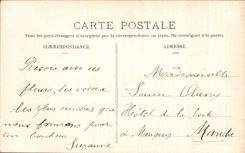 CARTE POSTALE
Tous les pays étrangers n'acceptent pas la correspondance au recto. (Se renseigner à la poste).
CORRESPONDANCE
ADRESSE
Reçois avec ces
fleurs, les vœux
les plus sincères que
nous formons pour
ton bonheur
Suzanne
Mademoiselle
Louise
Hôtel de la Poste
à
Manche